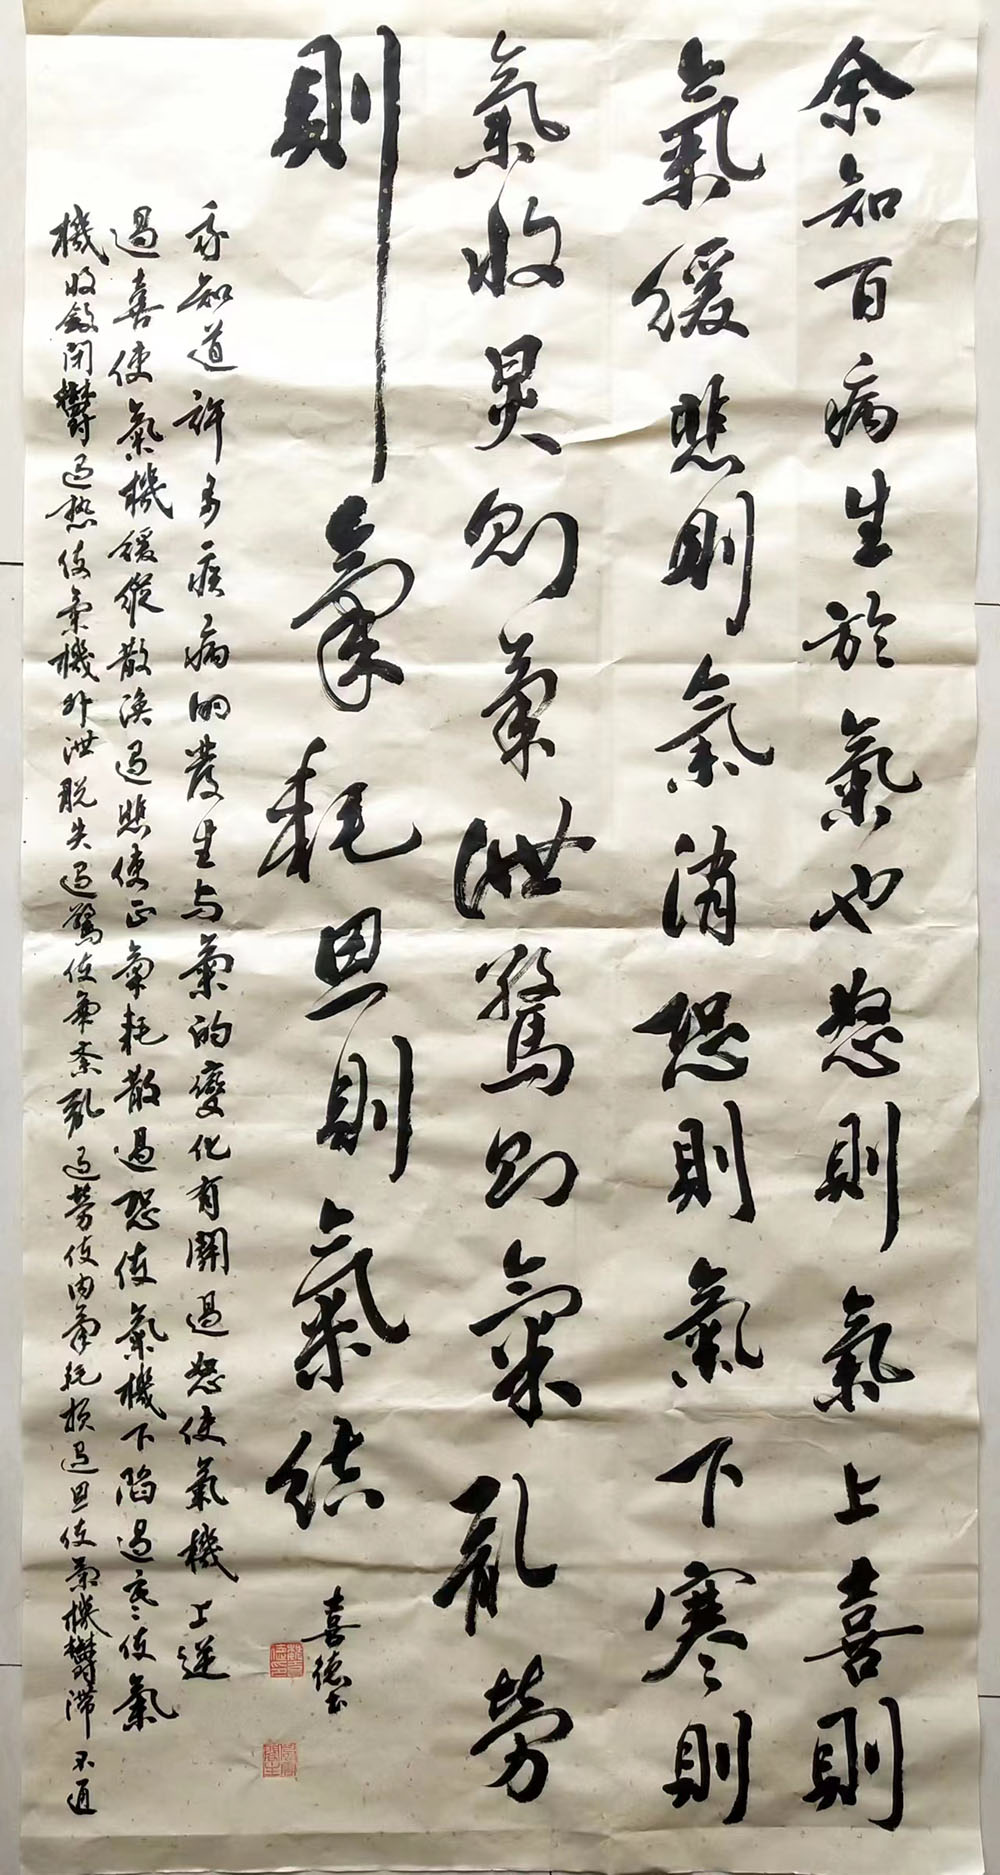 余知百病生於氣也怒則氣上喜則
氣緩悲則氣消恐則氣下寒則
氣收炅則氣泄驚則氣亂勞
則氣耗思則氣結
喜德书
我知道許多疾病的發生与氣的變化有關過怒使氣機上逆
過喜使氣機緩縱散渙過悲使正氣耗散過恐使氣機下陷過寒使氣
機收斂闭鬱過热使氣機外泄脱失過驚使氣紊亂過勞使内氣耗損過思使氣機鬱滞不通